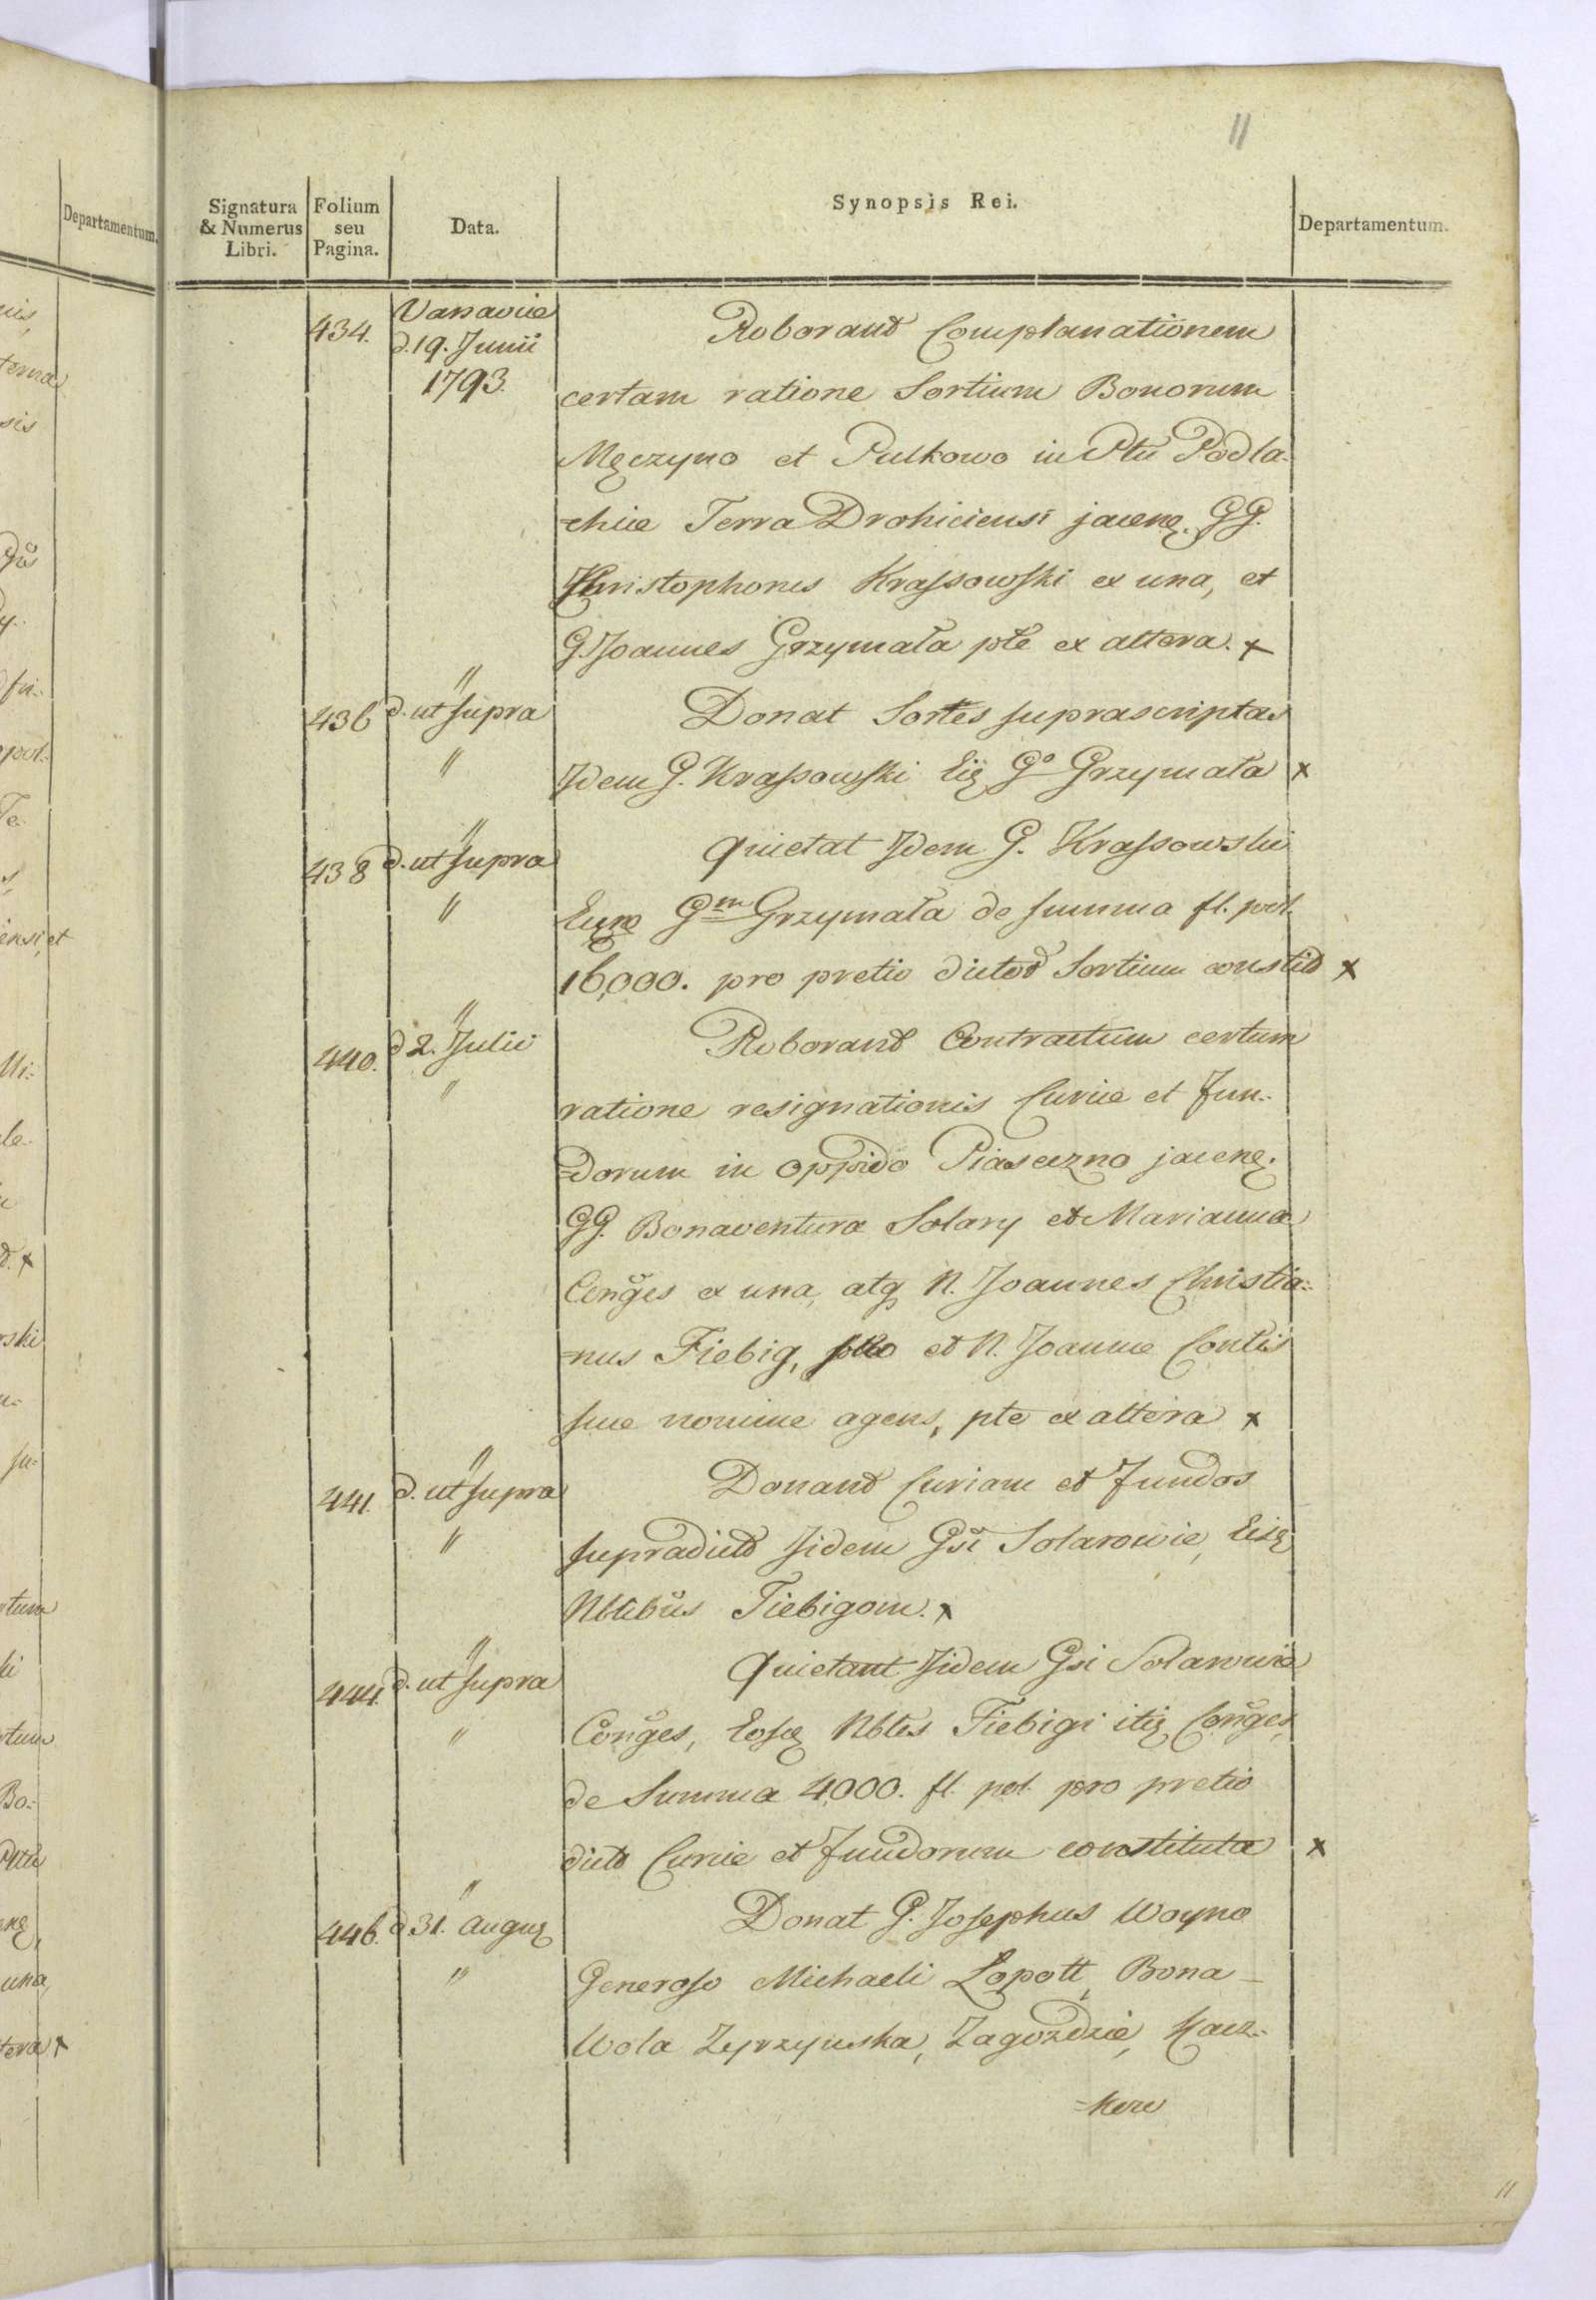 11
Departamentum.
Signatura & Numerus Libri.
Folium seu Pagina.
Data.
Synopsis Rei.
Departamentum.
434. Varsaviæ d. 19. Junii 1793.
Roborant Complanationem
certam ratione Sortium Bonorum
Męczyno et Pulkowo in Pltū Podla-
-chiæ Terra Drohiciensi jacenę. GG.
Christophorus Krassowski ex una, et
G. Joannes Grzymała pte ex altera. x
436 " d. ut supra "
Donat Sortes suprascriptas
Idem G. Krassowski Eię Go Grzymała x
438 " d. ut supra "
Quietat Idem G. Krassowski
Eunę Gm Grzymała de summa fl. pol.
16,000. pro pretio dictod Sortium constit x
440. " d 2. Julii "
Roborant Contractum certum
ratione resignationis Curiæ et Fun-
=dorum in oppido Piaseczno jacenę.
GG. Bonaventura Solary et Marianna
Conges ex una, atq N. Joannes Christia-
=nus Fiebig, suo et N. Joannæ Contis
suæ nomine agens, pte ex altera x
441. " d. ut supra "
Donant Curiam et Fundos
supradict Iidem Gsi Solarowie, Eisę
Nbtibus Fiebigom. x
444. " d. ut supra "
Quietant Iidem Gsi Solarowie
Conges, Eosę Nbtes Fiebigi itię Conges,
de Summa 4000. fl. pol. pro pretio
dict Curiæ et Fundorum constituta x
446. " d 31. Augus "
Donat G. Josephus Woyno
Generoso Michaeli Łopott, Bona
Wola Zyrzynska, Zagozdzie, Kacz-
=kow
11